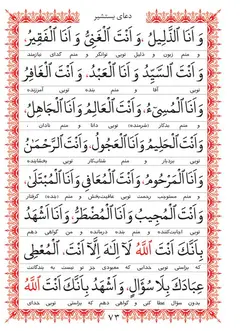 دعای یستشیر
وَ اَنَا الذَّلِيلُ، وَ اَنْتَ الْغَنِيُّ وَ اَنَا الْفَقِيرُ،
و منم زبون و ذلیل تویی توانگر و منم گدای نیازمند
وَ اَنْتَ السَّيِّدُ وَ اَنَا الْعَبْدُ، وَ اَنْتَ الْغَافِرُ
تویی آقا و منم بنده تویی آمرزنده
وَ اَنَا الْمُسِیءُ، وَ اَنْتَ الْعَالِمُ وَ اَنَا الْجَاهِلُ
و منم بدکار تویی دانا و منم نادان
وَ اَنْتَ الْحَلِيمُ وَ اَنَا الْعَجُولُ، وَ اَنْتَ الرَّحْمٰنُ
تویی بردبار و منم شتابکار تویی بخشاینده
وَ اَنَا الْمَرْحُومُ، وَ اَنْتَ الْمُعَافِي وَ اَنَا الْمُبْتَلَى،
و منم تویی عافیت‌بخش و منم گرفتار
وَ اَنْتَ الْمُجِيبُ وَ اَنَا الْمُضْطَرُّ، وَ اَنَا اَشْهَدُ
تویی اجابت و منم درمانده و من گواهی دهم
بِاَنَّكَ اَنْتَ اللّٰهُ لَا اِلٰهَ اِلَّا اَنْتَ، الْمُعْطِي
که براستی تویی خدایی که معبودی جز تو نیست به بندگانت
عِبَادَكَ بِلَا سُؤَالٍ، وَ اَشْهَدُ بِاَنَّكَ اَنْتَ اللّٰهُ
بدون سؤال عطا کنی و گواهی دهم که براستی تویی خدای
۷۳